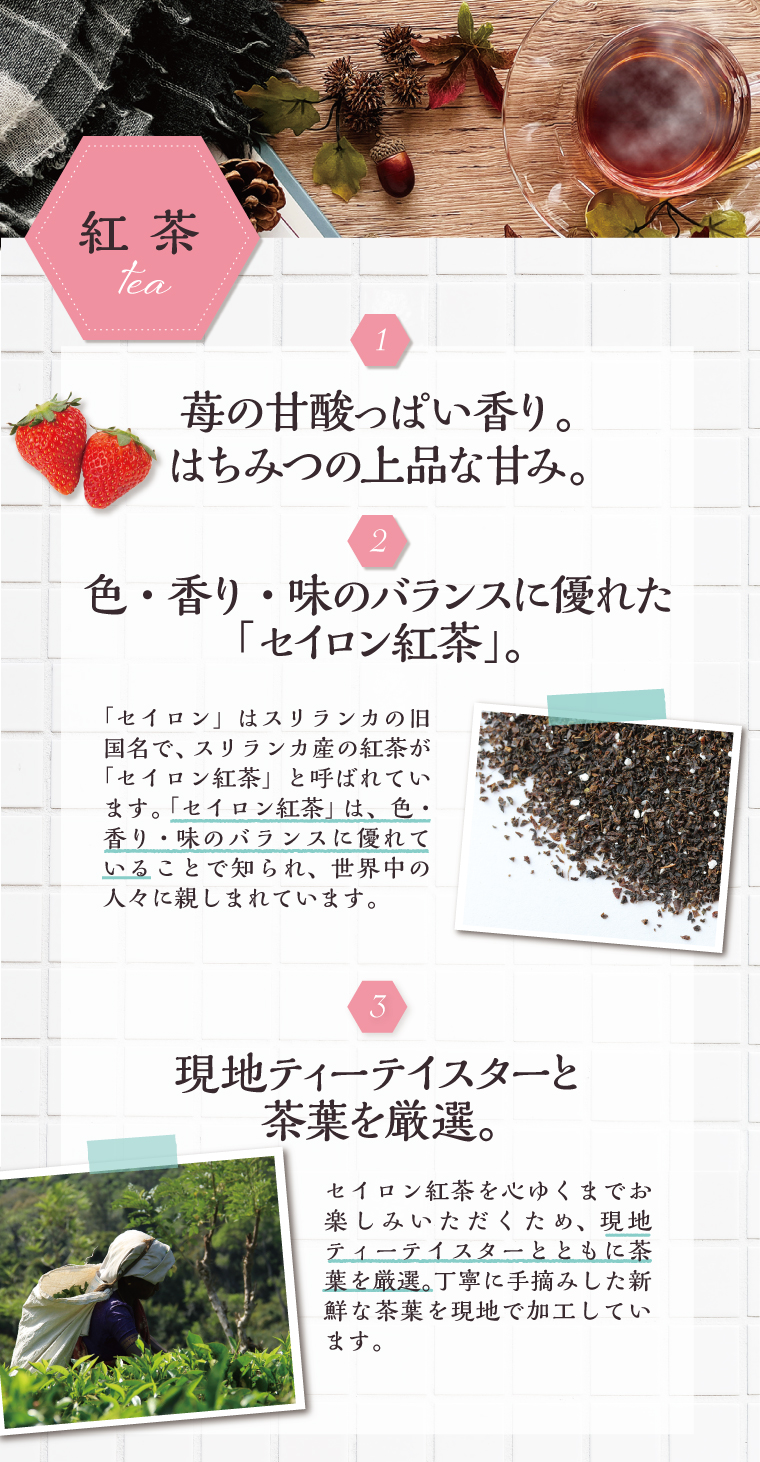 紅茶
tea
1
苺の甘酸っぱい香り。
はちみつの上品な甘み。
2
色・香り・味のバランスに優れた
「セイロン紅茶」。
「セイロン」はスリランカの旧
国名で、スリランカ産の紅茶が
「セイロン紅茶」と呼ばれてい
ます。「セイロン紅茶」は、色・
香り・味のバランスに優れて
いることで知られ、世界中の
人々に親しまれています。
3
現地ティーテイスターと
茶葉を厳選。
セイロン紅茶を心ゆくまでお
楽しみいただくため、現地
ティーテイスターとともに茶
葉を厳選。丁寧に手摘みした新
鮮な茶葉を現地で加工してい
ます。